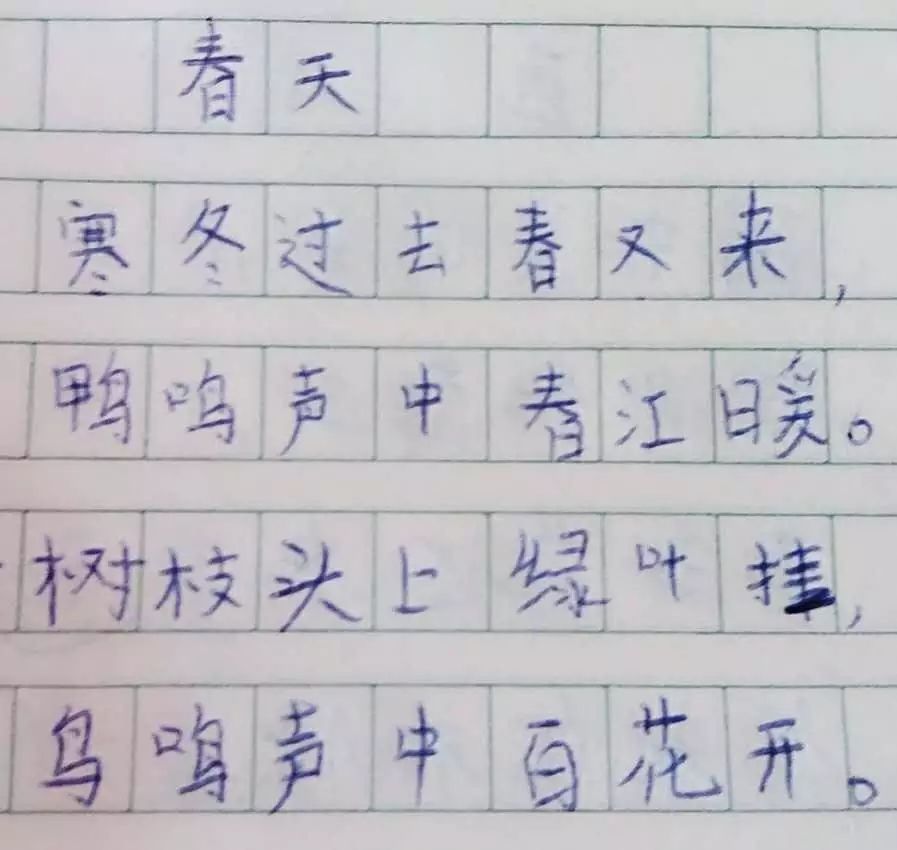 春天
寒冬过去春又来,
鸭鸣声中春江暖。
树枝头上绿叶挂,
鸟鸣声中百花开。